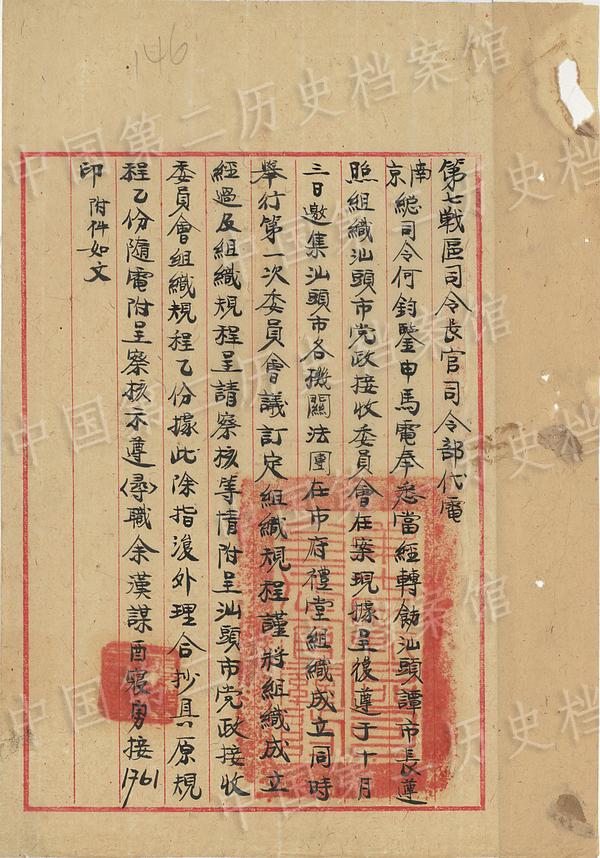 146
第七戰區司令長官司令部代電
南京總司令何鈞鑒申馬電奉悉當經轉飭汕頭譚市長遵
照組織汕頭市党政接收委員會在案現據呈復遵于十月
三日邀集汕頭市各機關法團在市府禮堂組織成立同時
舉行第一次委員會議訂定組織規程謹將組織成立
經過及組織規程呈請察核等情附呈汕頭市党政接收
委員會組織規程乙份據此除指復外理合抄具原規
程乙份隨電附呈察核示遵(尋)職余漢謀酉寢勇接1761
印 附件如文
中国第二历史档案馆